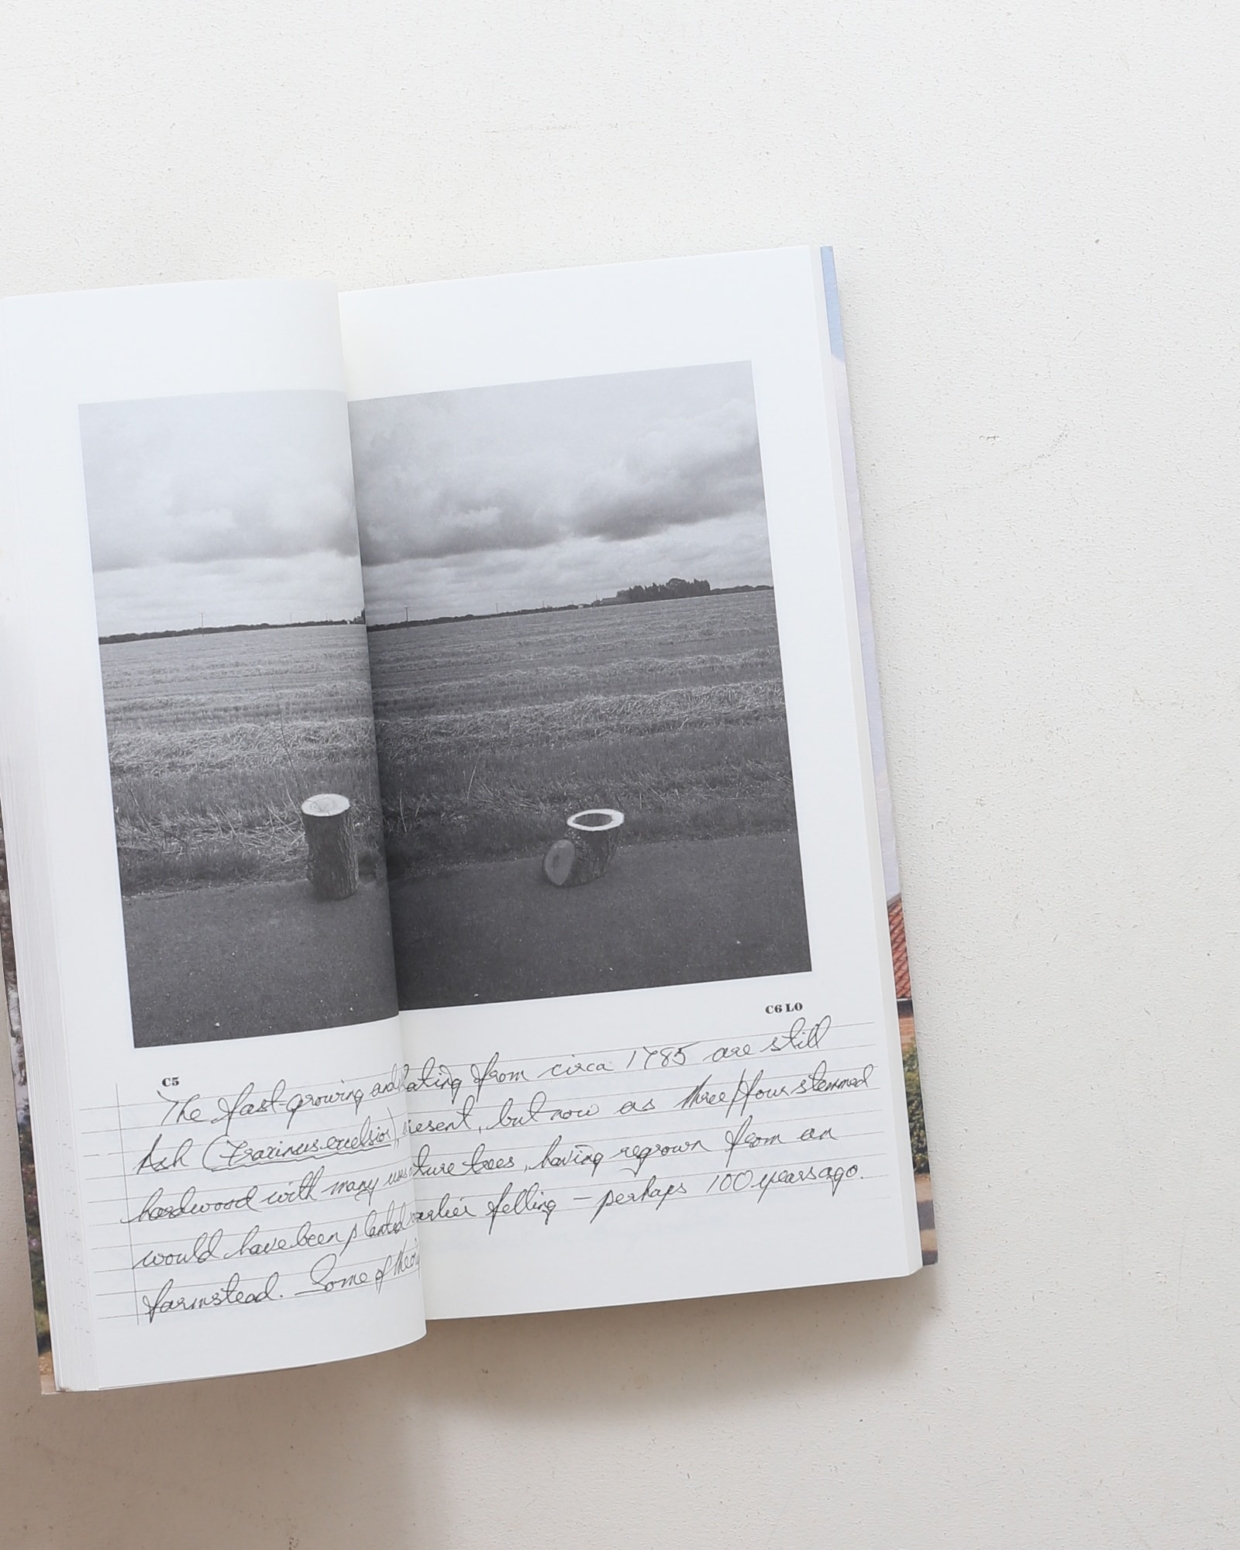 C5
The fast-growing and
Ash (Fraxinus excelsior),
hardwood with many
would have been planted
farmstead. Some of
C6 LO
ating from circa 1785 are still
resent, but now as three/four stemmed
ture trees, having regrown from an
arlier felling – perhaps 100 years ago.